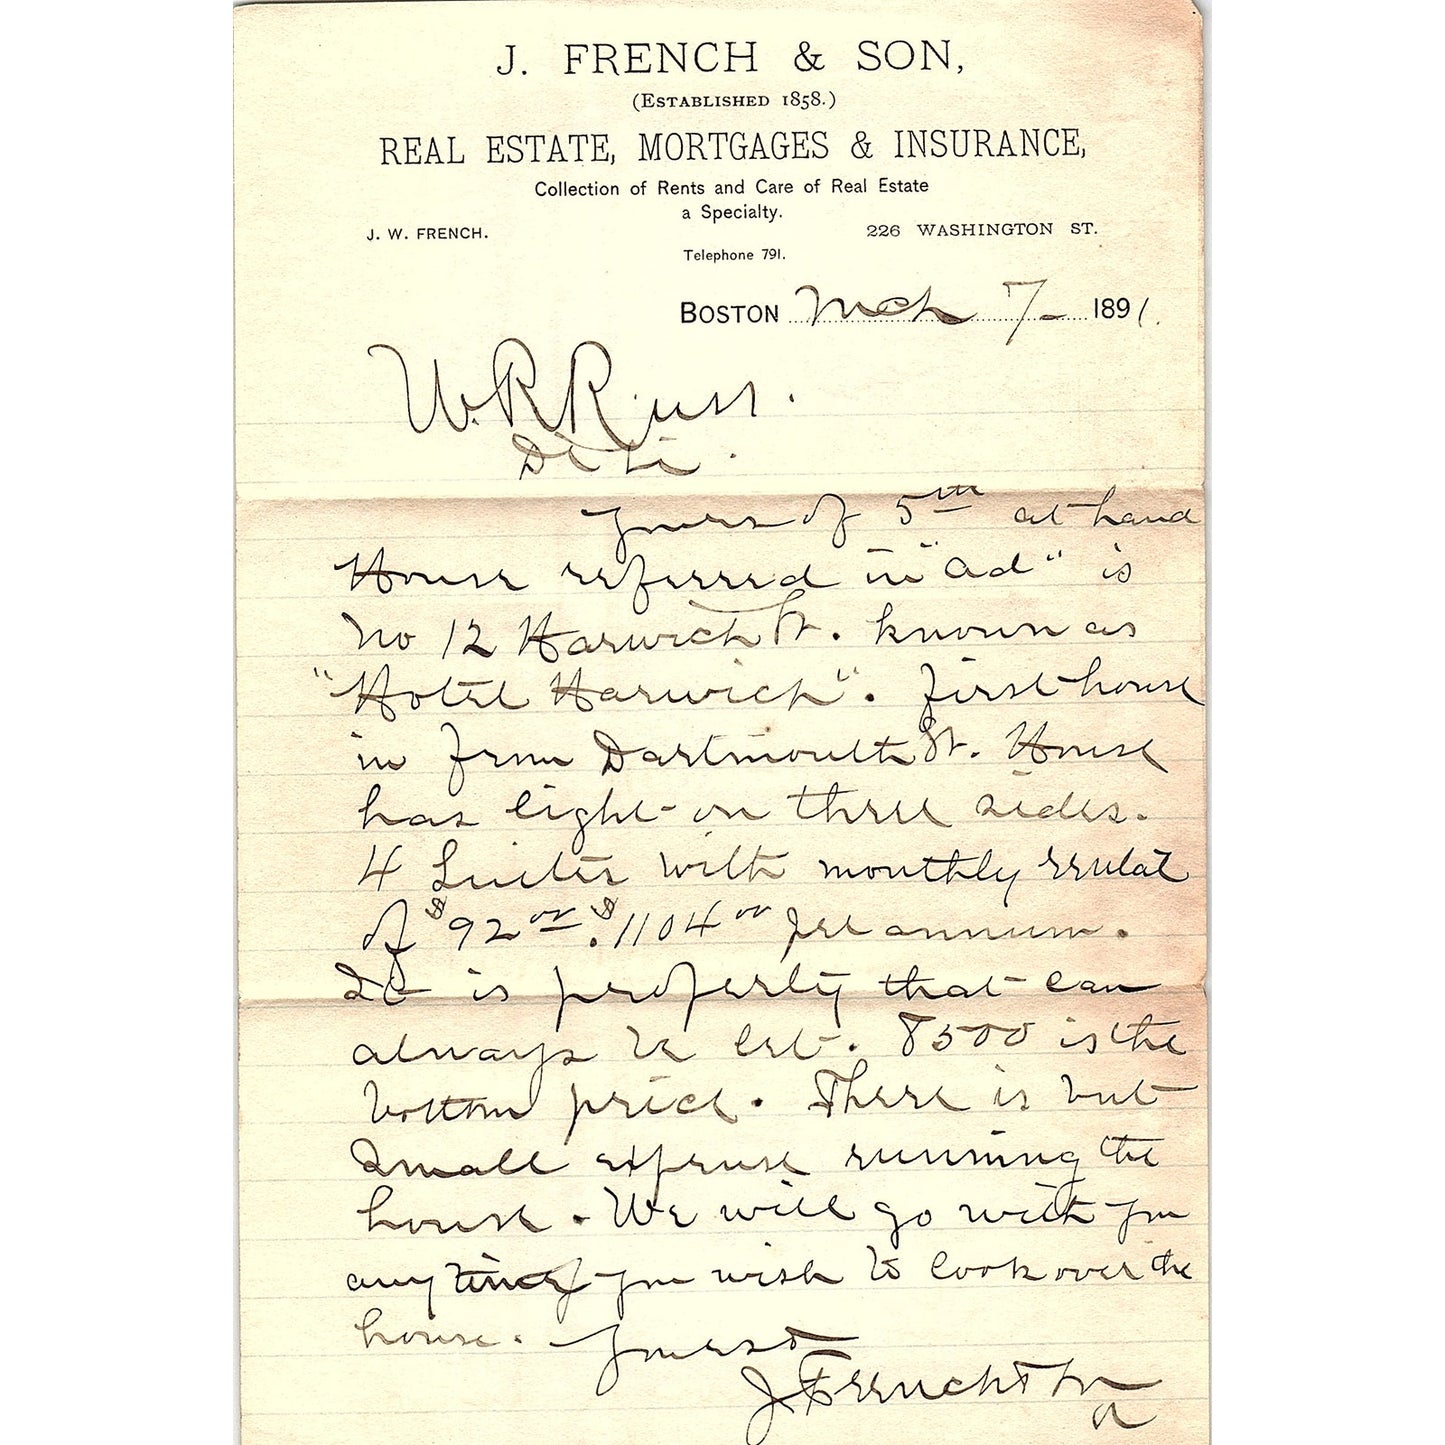 J. FRENCH & SON,
(ESTABLISHED 1858.)
REAL ESTATE, MORTGAGES & INSURANCE,
Collection of Rents and Care of Real Estate
a Specialty.
J. W. FRENCH.
226 WASHINGTON ST.
Telephone 791.
BOSTON Mch 7- 1891.
W. R. Russ.
D Sir.
Yours of 5th at hand
House referred in "ad" is
No 12 Harwich St. known as
"Hotel Harwich". first house
in from Dartmouth St. House
has light on three sides.
4 Suites with monthly rental
of $92 00. $1104 00 per annum.
It is property that can
always be let. 8500 is the
bottom price. There is but
small expense running the
house. We will go with you
any time you wish to look over the
house. Yours
J French & Son